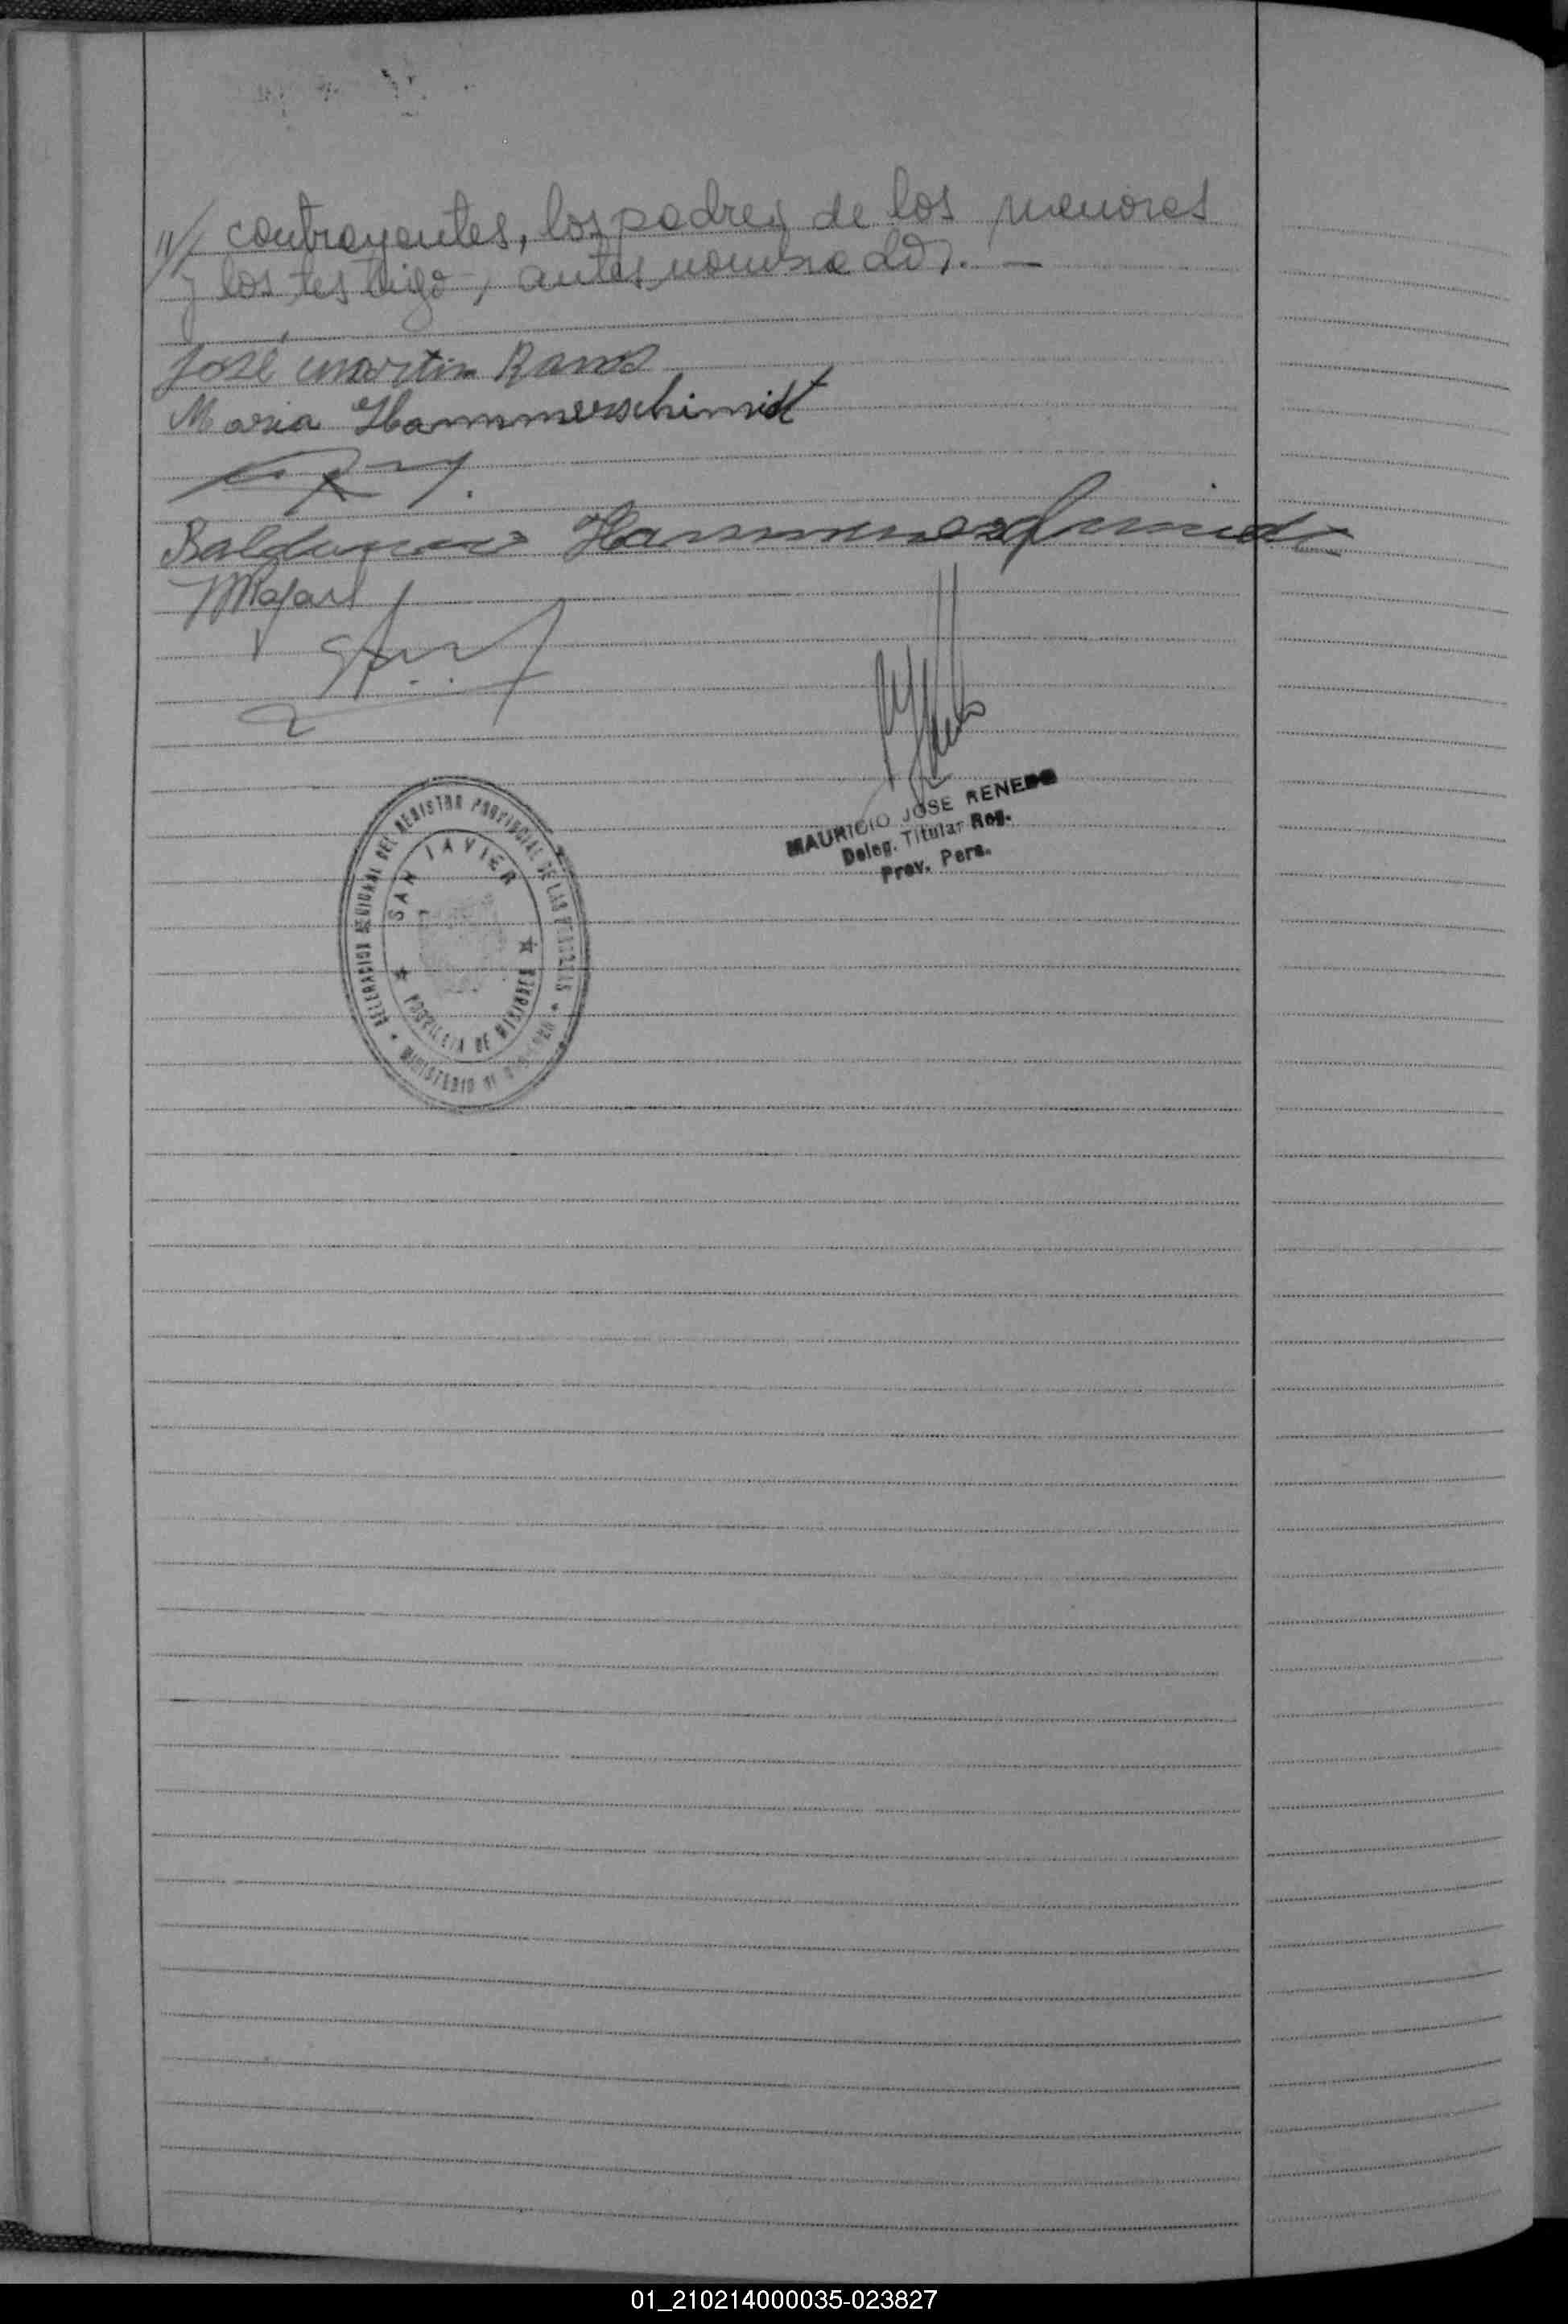 //// contrayentes, los padres de los menores
y los testigo, antes nombrados. —
José martin Ramos
Maria Hammmerschimidt
Hammmerschmidt
MAURICIO JOSE RENEDO
Deleg. Titular Reg.
Prov. Pers.
DELEGACION REGIONAL DEL REGISTRO PROVINCIAL DE LAS PERSONAS
SAN JAVIER
PROVINCIA DE MISIONES
MINISTERIO DE GOBIERNO
01_210214000035-023827